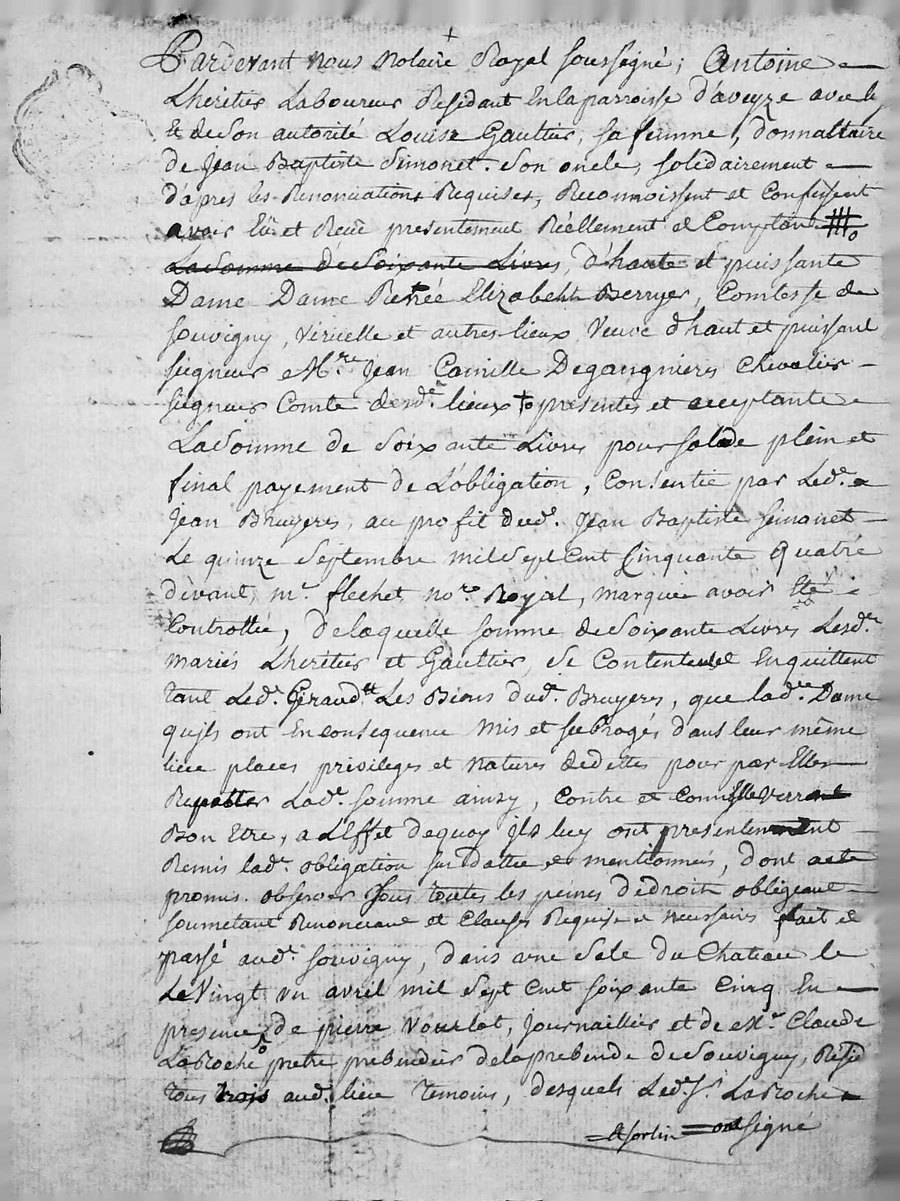 Pardevant nous notaire Royal soussigné; Antoine
Lheritier Laboureur Residant En la parroisse d'aveyze avec luy
Et de Son autorité Louise Gaultier, sa femme, donnaltaire
de Jean Baptiste Simonet Son oncle, solidairement
d'apres les Renonciations Requises, Reconnoissent et Confessent
avoir Eü et Receü presentement Réellement et Comptant
La Somme de Soixante Livres, d'haute et puissante
Dame Dame Renée Elizabeht Berryer, Comtesse de
Souvigny, Viricelle et autres lieux, Veuve d'haut et puissant
seigneur Mre Jean Camille Degangnieres Chevalier
seigneur Comte desde lieux presentes et acceptante
La Somme de Soixante Livres pour solde plein et
final payement de L'obligation, Consentie par Led.
Jean Bruyeres, au profit dud. Jean Baptiste Simonet
Le quinze Septembre mil Sept Cent Cinquante Quatre
devant mr. flechet nore Royal, marquée avoir Eté
Controllée, de laquelle somme de Soixante Livres Lesd.
mariés Lheritier et Gaultier, Se Contentent En quittent
tant Led. Les Biens dud. Bruyeres, que lade Dame
qu'jls ont En consequence Mis et subrogés dans leur même
lieu places privileges et natures de dettes pour par Elle
Repetter Lad. somme ainsy, Contre et Comm Elle Verra
Bon Etre, a L'Effet de quoy jls luy ont presentement
Remis lad. obligation sus dattée et mentionnée, dont acte
promis observer sous toutes les peines de droit obligeant
soumetant Renonceant et Clauses Requise et necessaires fait et
passé aud. Souvigny, dans une Sale du Chateau le
Le Vingt un avril mil Sept Cent soixante Cinq En
presence de pierre Vourlot, Journaillier et de Mr. Claude
LaRoche pretre prebendier de la prebende de Souvigny, Resid
tous trois aud. lieu temoins, desquels Led. Sr. LaRoche
a signé